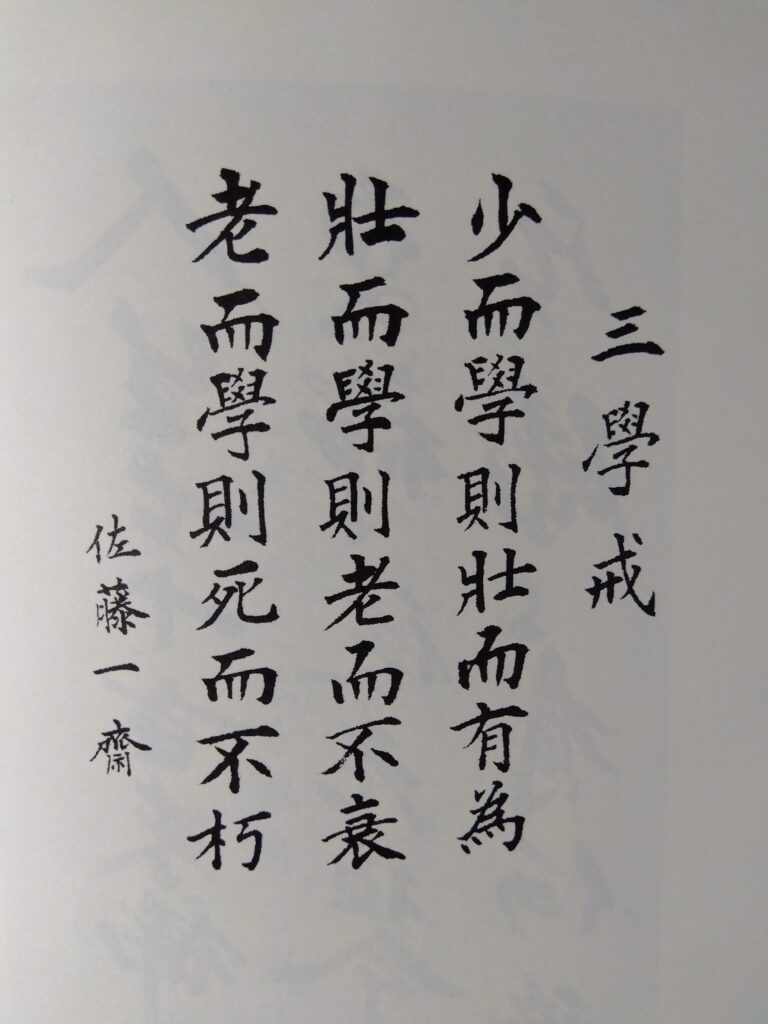 三學戒
少而學則壯而有為
壯而學則老而不衰
老而學則死而不朽
佐藤一齋